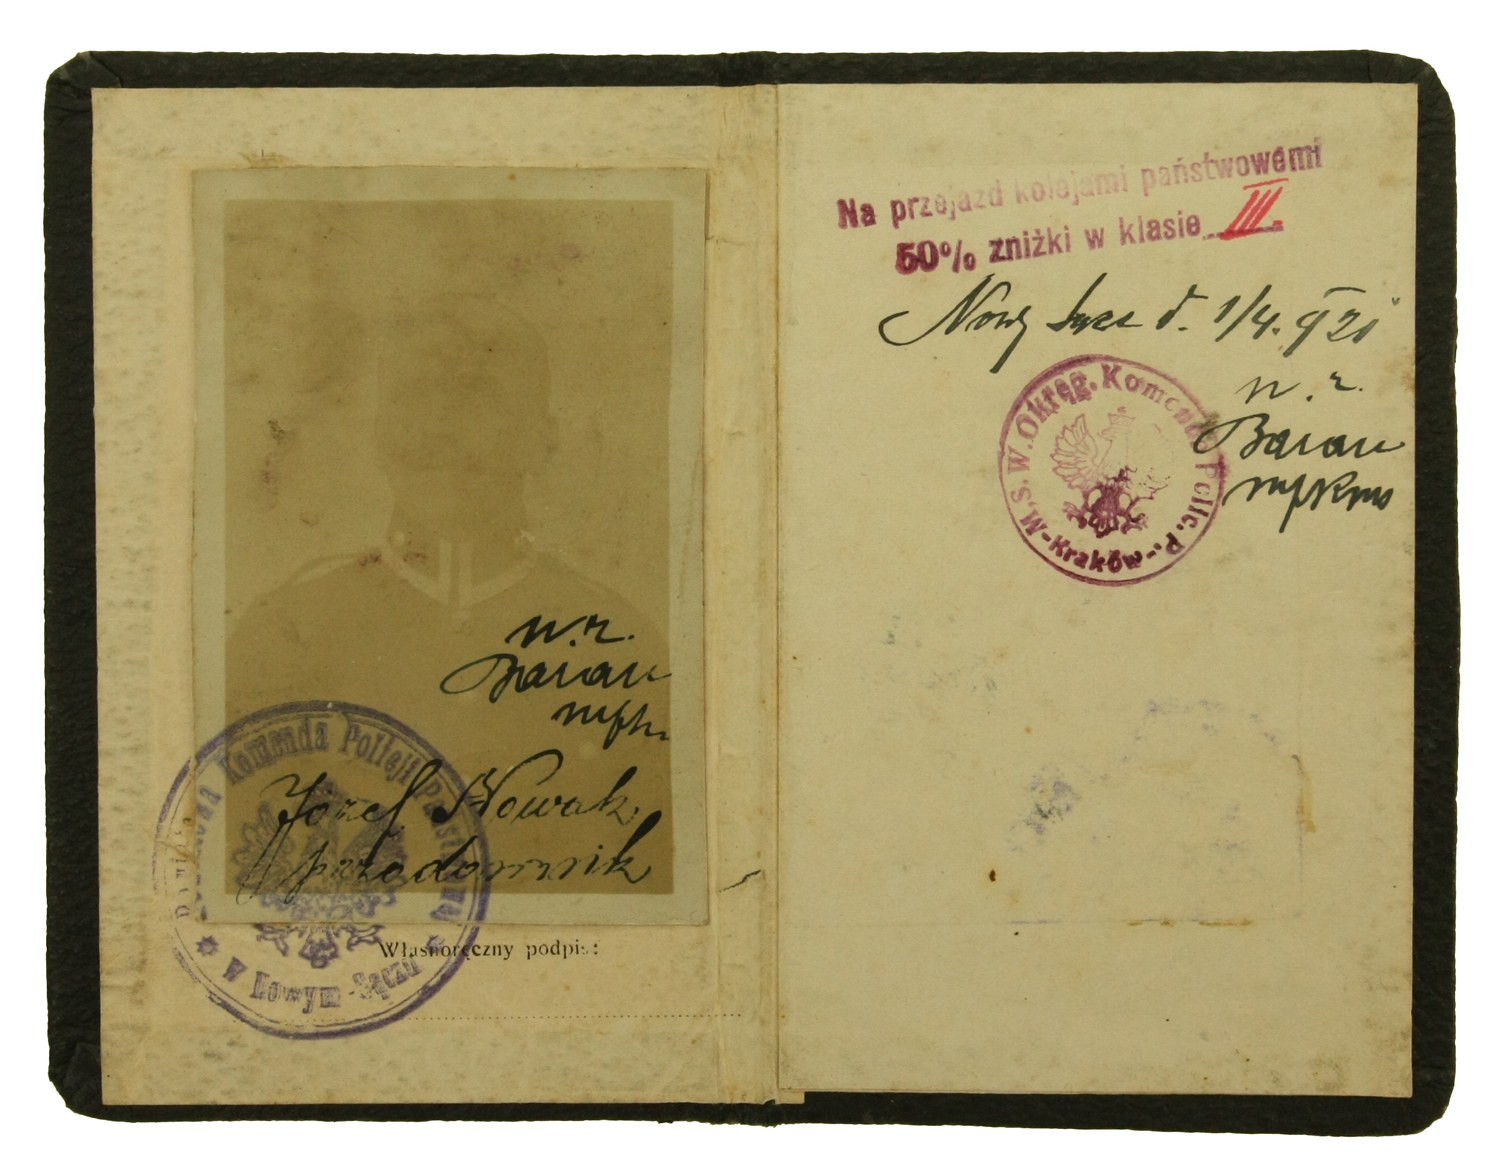 w. z.
Baran
Józef Nowak
przodownik
Powiatowa Komenda Policji Państwowej
w Nowym-Sączu
Własnoręczny podpis:
Na przejazd kolejami państwowemi
50% zniżki w klasie III.
Nowy Sącz d. 1/4. 921
w. z.
Baran
M.S.W. Okręg. Komenda Polic. P.
-Kraków-